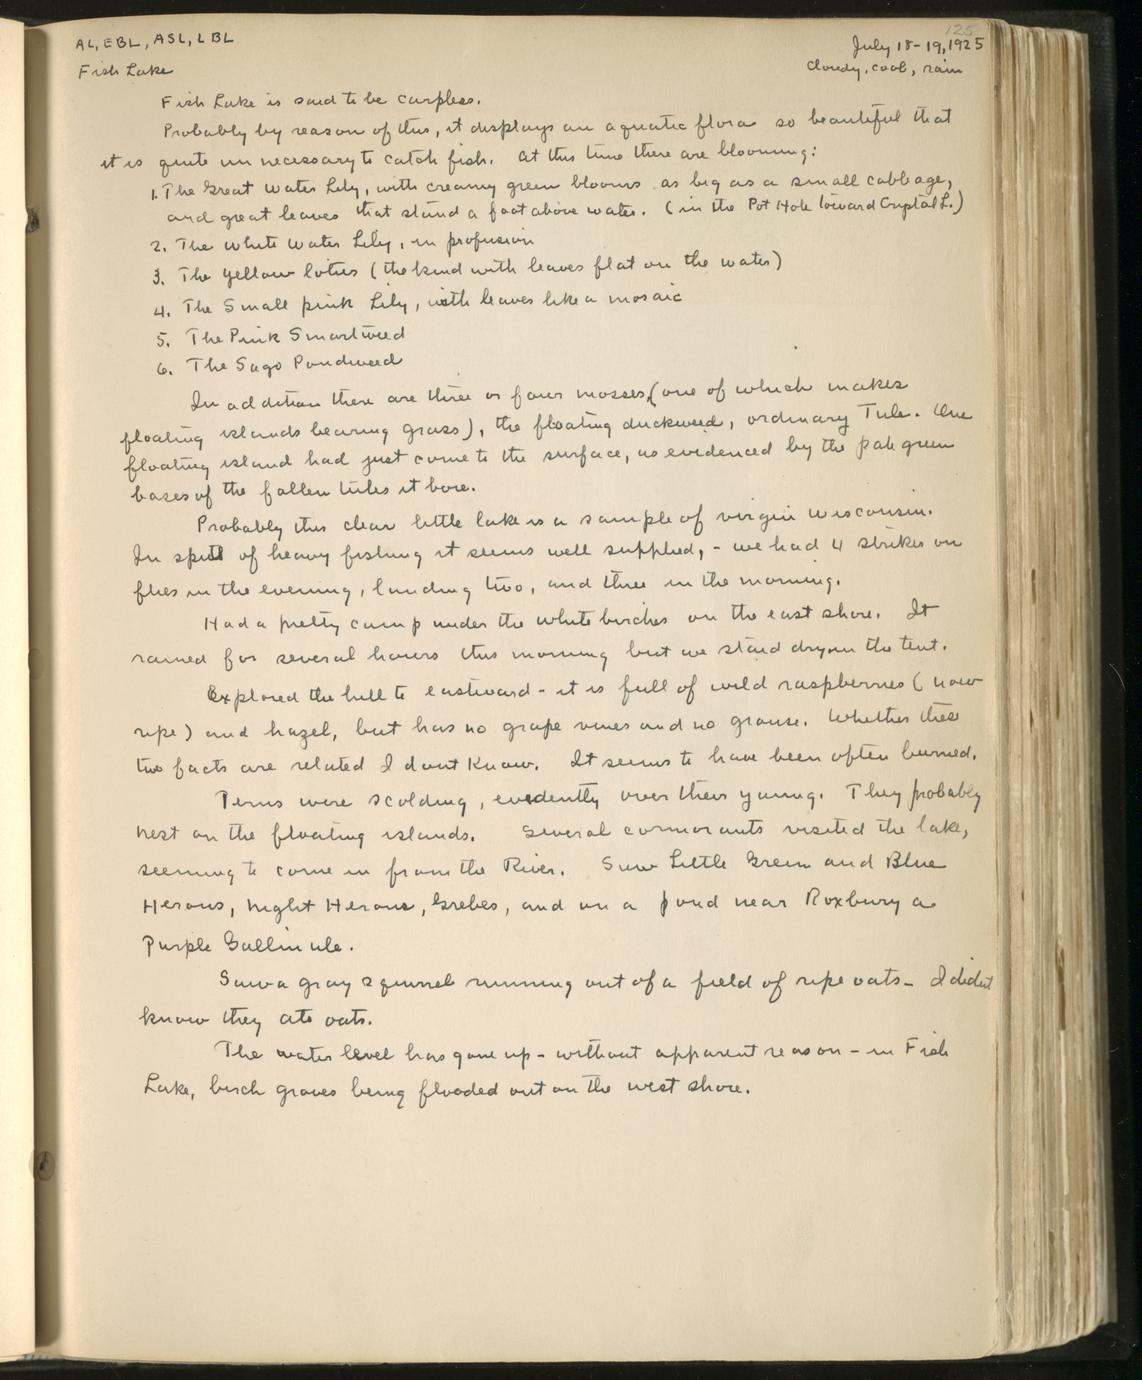 125
AL, EBL, ASL, LBL
July 18-19, 1925
Fish Lake
Cloudy, cool, rain
Fish Lake is said to be carpless.
Probably by reason of this, it displays an aquatic flora so beautiful that
it is quite unnecessary to catch fish. At this time there are blooming:
1. The Great Water Lily, with creamy green blooms as big as a small cabbage,
and great leaves that stand a foot above water. (in the Pot Hole toward Crystal L.)
2. The White Water Lily, in profusion
3. The yellow lotus (the kind with leaves flat on the water)
4. The Small pink Lily, with leaves like a mosaic
5. The Pink Smartweed
6. The Sago Pondweed
In addition there are three or four mosses, (one of which makes
floating islands bearing grass), the floating duckweed, ordinary Tule. One
floating island had just come to the surface, as evidenced by the pale green
bases of the fallen tules it bore.
Probably this clear little lake is a sample of virgin Wisconsin.
In spite of heavy fishing it seems well supplied, - we had 4 strikes on
flies in the evening, landing two, and three in the morning.
Had a pretty camp under the white birches on the east shore. It
rained for several hours this morning but we staid dry in the tent.
Explored the hill to eastward - it is full of wild raspberries (now
ripe) and hazel, but has no grape vines and no grouse. Whether these
two facts are related I dont know. It seems to have been often burned.
Terns were scolding, evidently over their young. They probably
nest on the floating islands. Several cormorants visited the lake,
seeming to come in from the River. Saw Little Green and Blue
Herons, Night Herons, Grebes, and on a pond near Roxbury a
Purple Gallinule.
Saw a gray squirrel running out of a field of ripe oats - I didnt
know they ate oats.
The water level has gone up - without apparent reason - in Fish
Lake, birch groves being flooded out on the west shore.